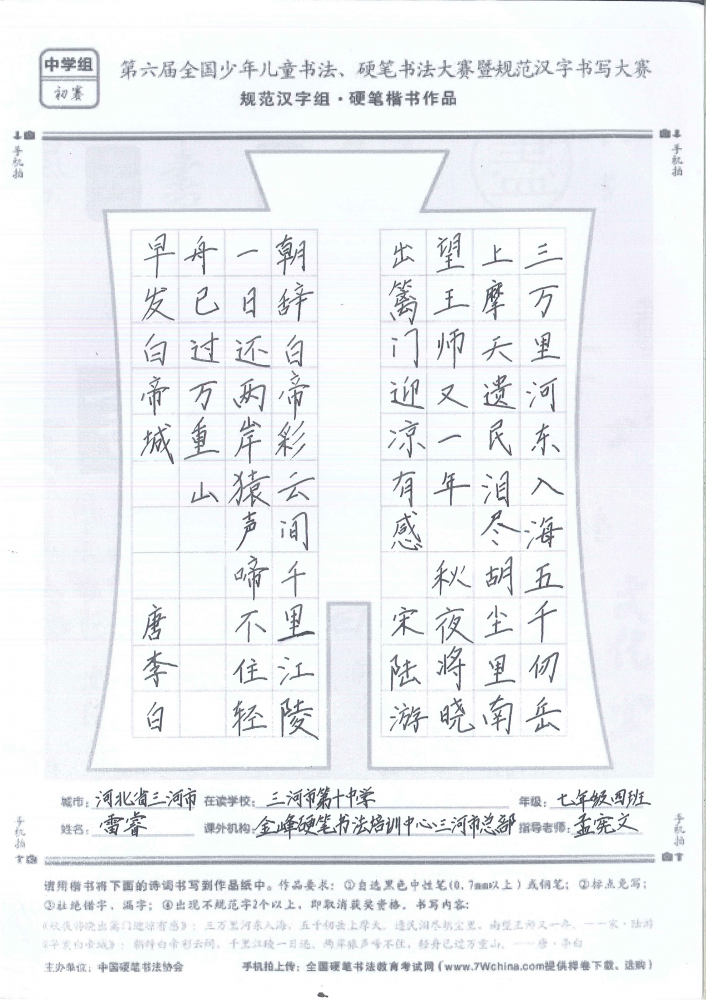 中学组
初赛
第六届全国少年儿童书法、硬笔书法大赛暨规范汉字书写大赛
规范汉字组·硬笔楷书作品
手机拍
手机拍
三万里河东入海五千仞岳
上摩天遗民泪尽胡尘里南
望王师又一年 秋夜将晓
出篱门迎凉有感 宋陆游
朝辞白帝彩云间千里江陵
一日还两岸猿声啼不住轻
舟已过万重山
早发白帝城 唐李白
城市：河北省三河市 在读学校：三河市第十中学 年级：七年级四班
姓名：雷睿 课外机构：金峰硬笔书法培训中心三河市总部 指导老师：孟宪文
手机拍
手机拍
请用楷书将下面的诗词书写到作品纸中。作品要求：①自选黑色中性笔(0.7mm以上)或钢笔；②标点免写；
③杜绝错字、漏字；④出现不规范字2个以上，即取消获奖资格。书写内容：
《秋夜将晓出篱门迎凉有感》：三万里河东入海，五千仞岳上摩天。遗民泪尽胡尘里，南望王师又一年。——宋·陆游
《早发白帝城》：朝辞白帝彩云间，千里江陵一日还。两岸猿声啼不住，轻舟已过万重山。——唐·李白
主办单位：中国硬笔书法协会 手机拍上传：全国硬笔书法教育考试网（www.7Wchina.com提供样卷下载、选购）